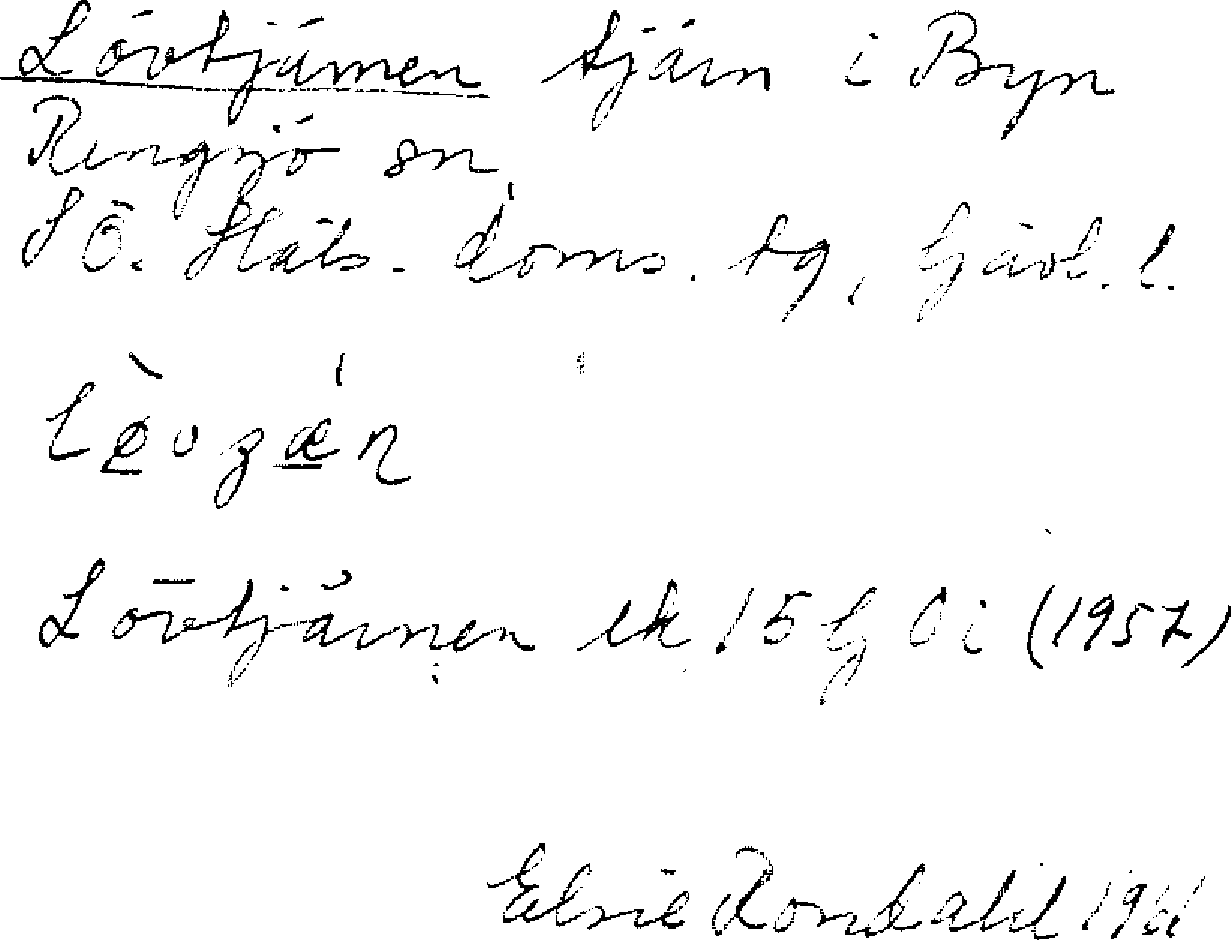 Lövtjärnen tjärn i Byn
Rengsjö sn
SÖ. Häls. doms. tg, Gävl. l.
Lövtjärnen ek 15 G 0 i (1957)
Elsie Rondahl 1961